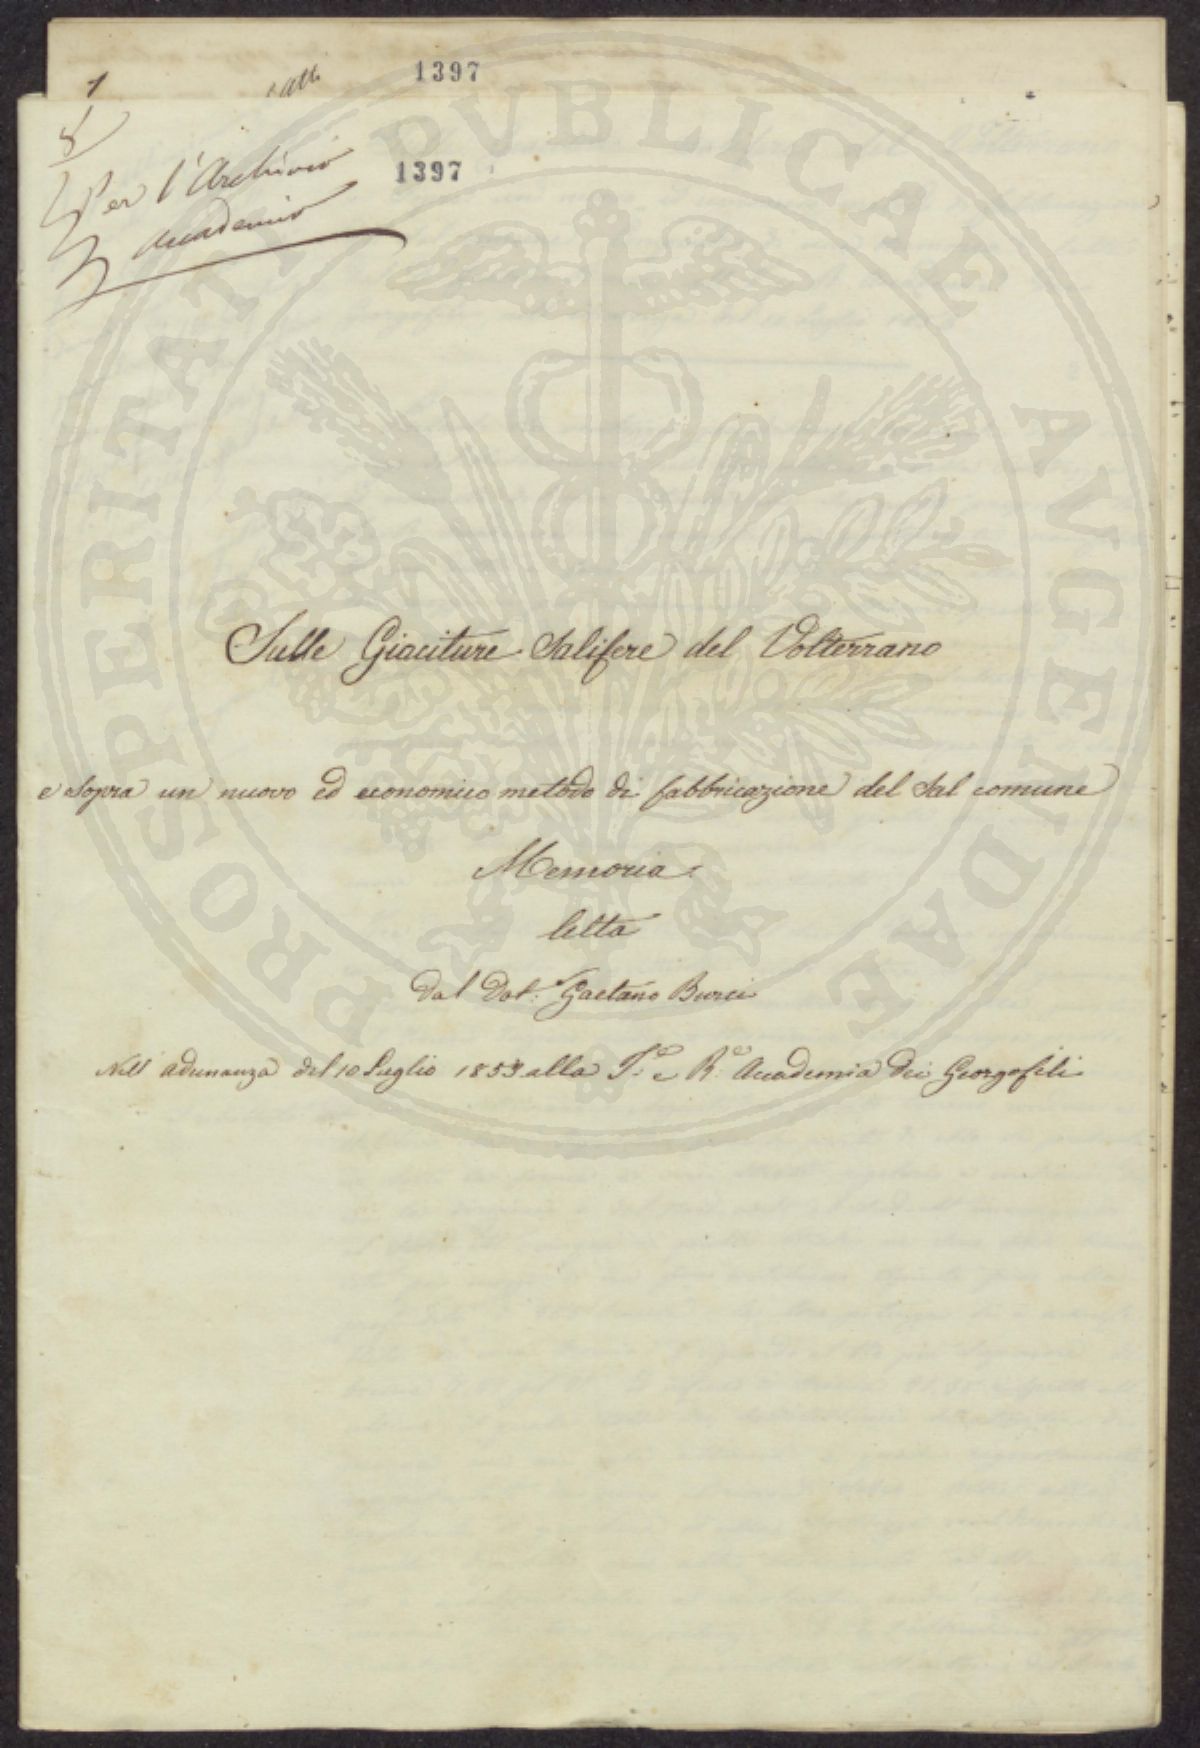 1
1397
1397
Per l'Archivio
Accademico
Sulle Giaciture Salifere del Volterrano
e sopra un nuovo ed economico metodo di fabbricazione del Sal comune
Memoria
letta
Dal Dot.r Gaetano Burci
Nell' adunanza del 10 Luglio 1853 alla I.e e R.e Accademia dei Georgofili
PROSPERITATI PVBLICAE AVGENDAE